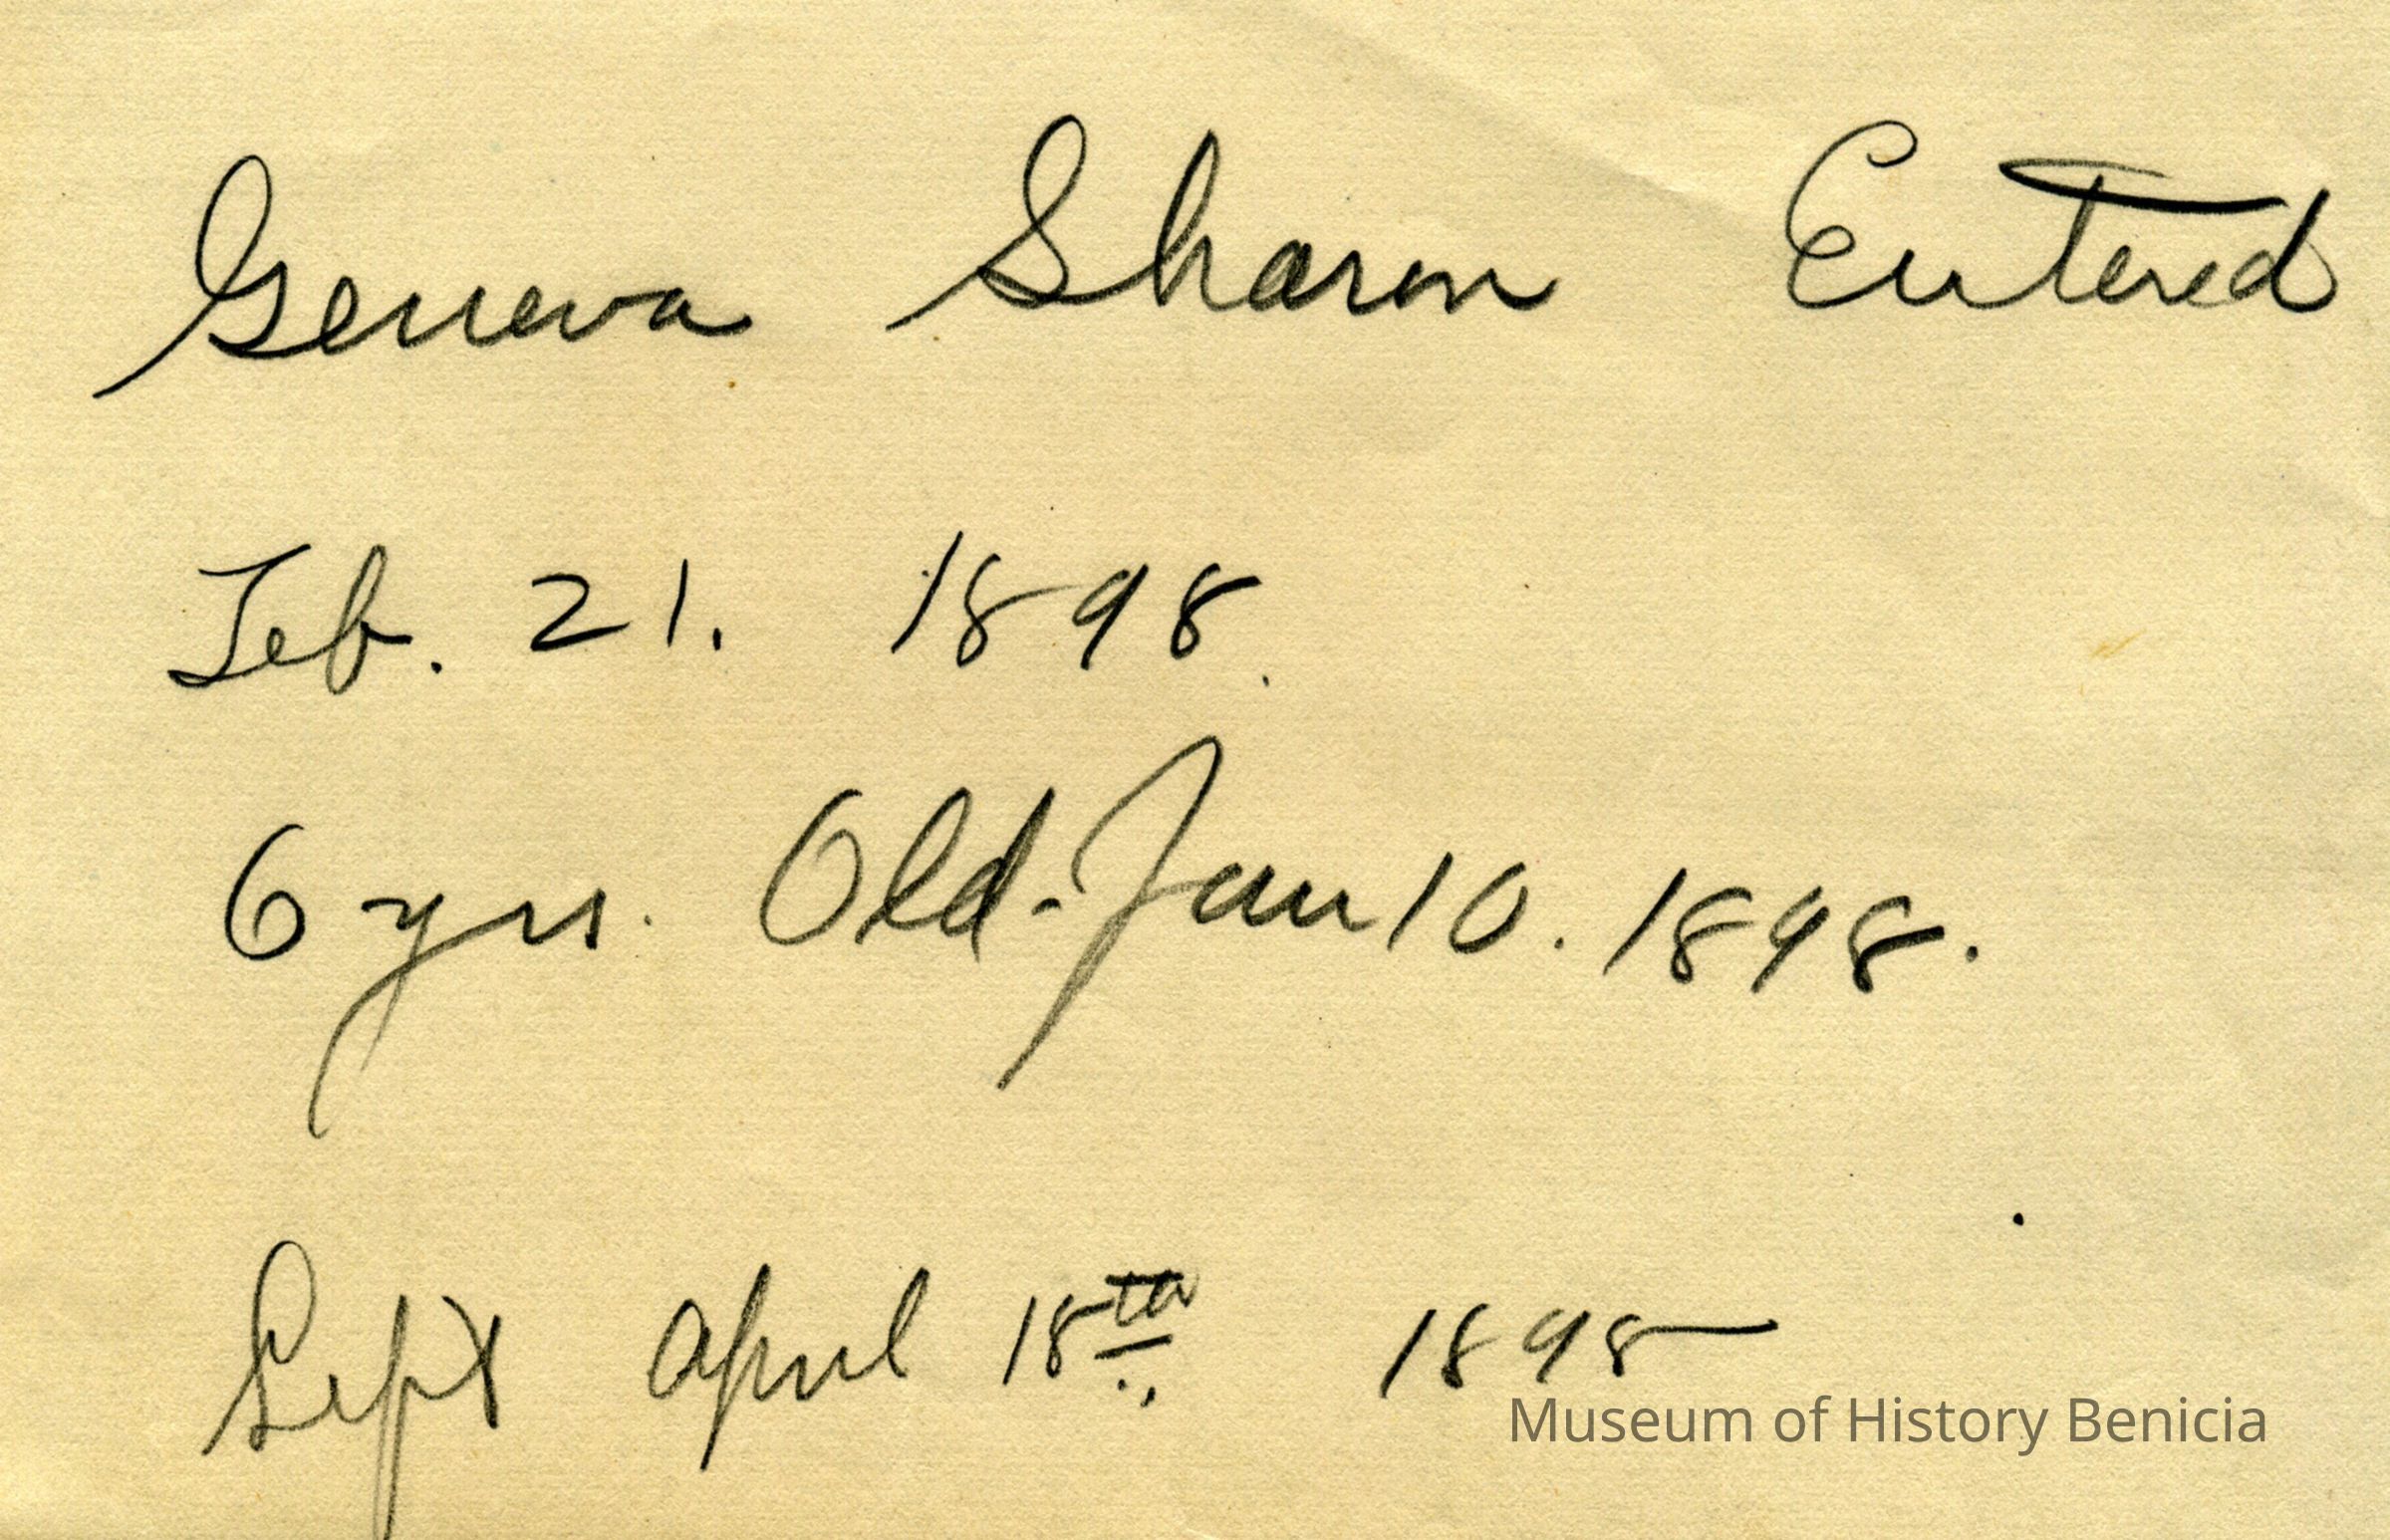 Geneva Sharon Entered
Feb. 21. 1898.
6 yrs. Old - Jan 10. 1898.
April 18th 1898
Museum of History Benicia